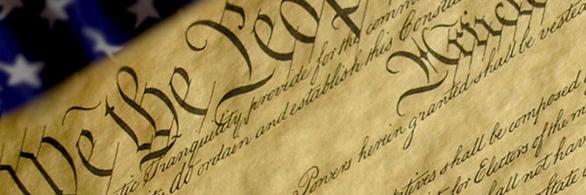 We the Peop
Tranquility, provide for the comm
do ordain and establish this Constitu
Article
Powers herein granted shall be vested
shall be composed
for Electors of the m
shall not hav
State